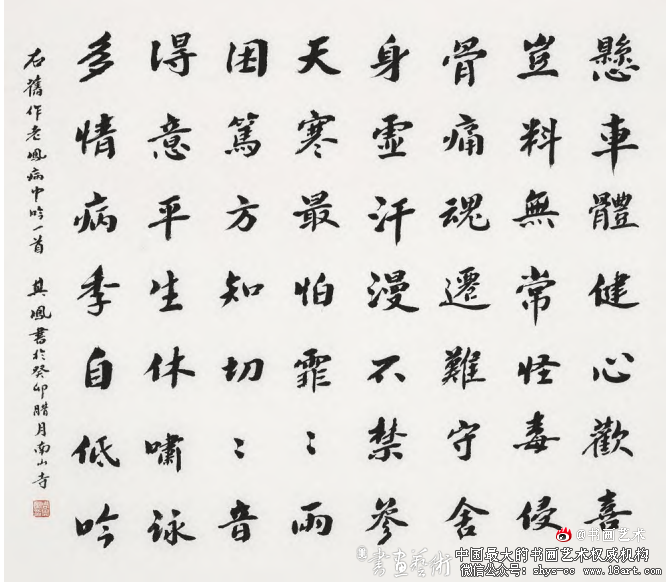 懸車體健心歡喜
豈料無常怪毒侵
骨痛魂遷難守舍
身虛汗漫不禁參
天寒最怕霏〻雨
困篤方知切〻音
得意平生休嘯詠
多情病季自低吟
右舊作老鳳病中吟一首 其鳳書於癸卯臘月南山寺
书画艺术
書画藝術
中国最大的书画艺术权威机构
微信公众号: shys-cc www.18art.com